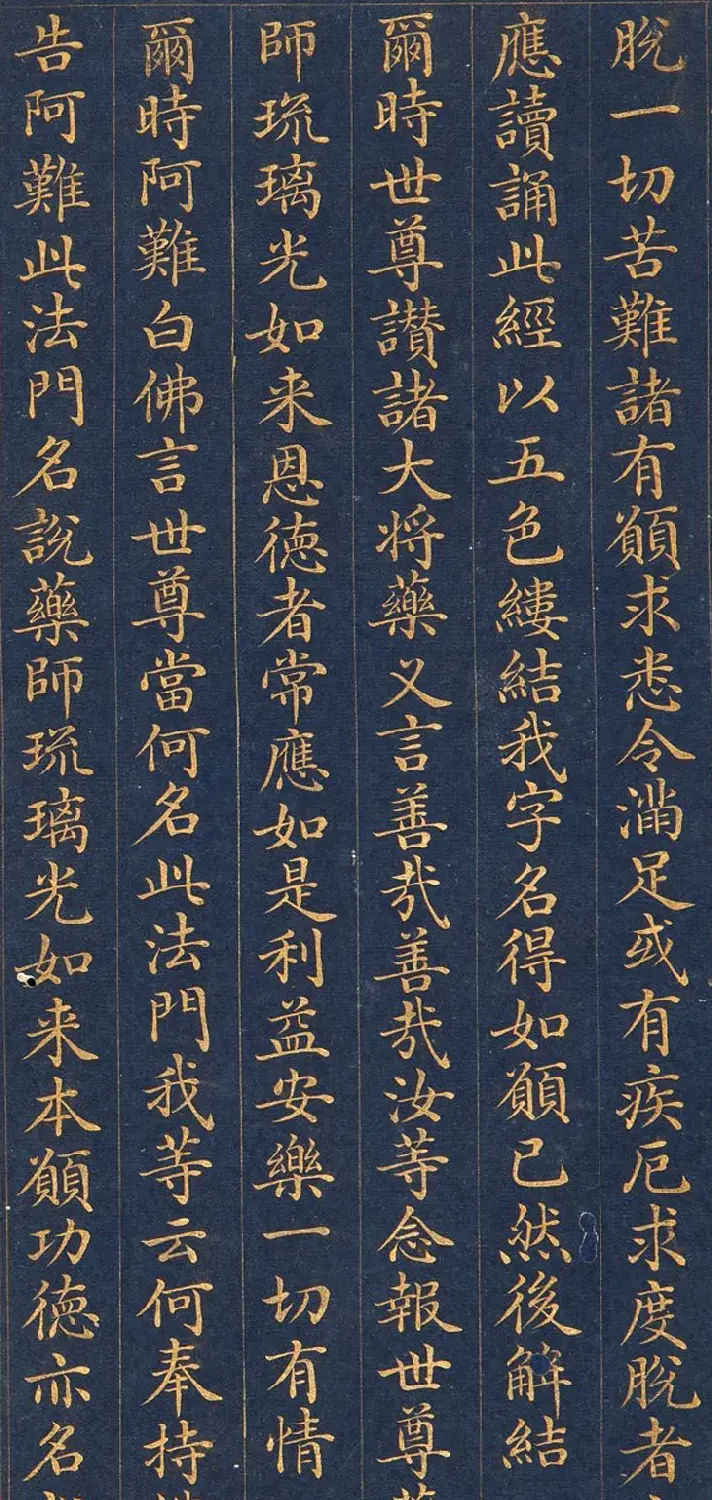 脫一切苦難諸有願求悉令滿足或有疾厄求度脫者
應讀誦此經以五色縷結我字名得如願已然後解結
爾時世尊讃諸大将藥叉言善哉善哉汝等念報世尊
師琉璃光如来恩德者常應如是利益安樂一切有情
爾時阿難白佛言世尊當何名此法門我等云何奉持
告阿難此法門名說藥師琉璃光如来本願功德亦名